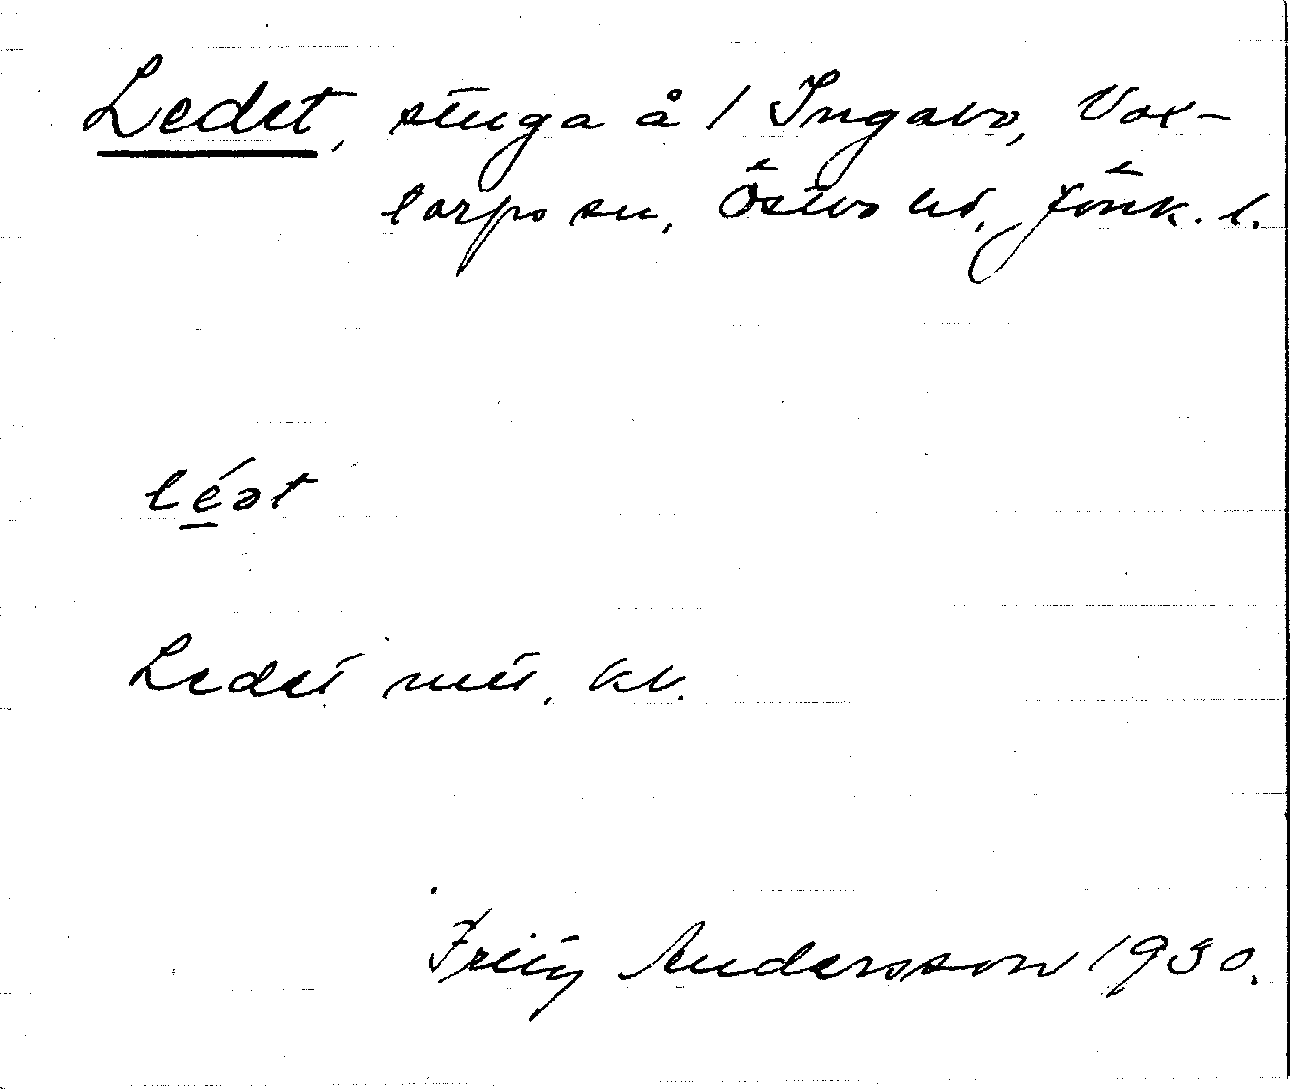 Ledet, stuga å 1 Ingabo, Vox-
torps sn, Östbo hd, Jönk. l.
léət
Ledet
Fritz Andersson 1930.